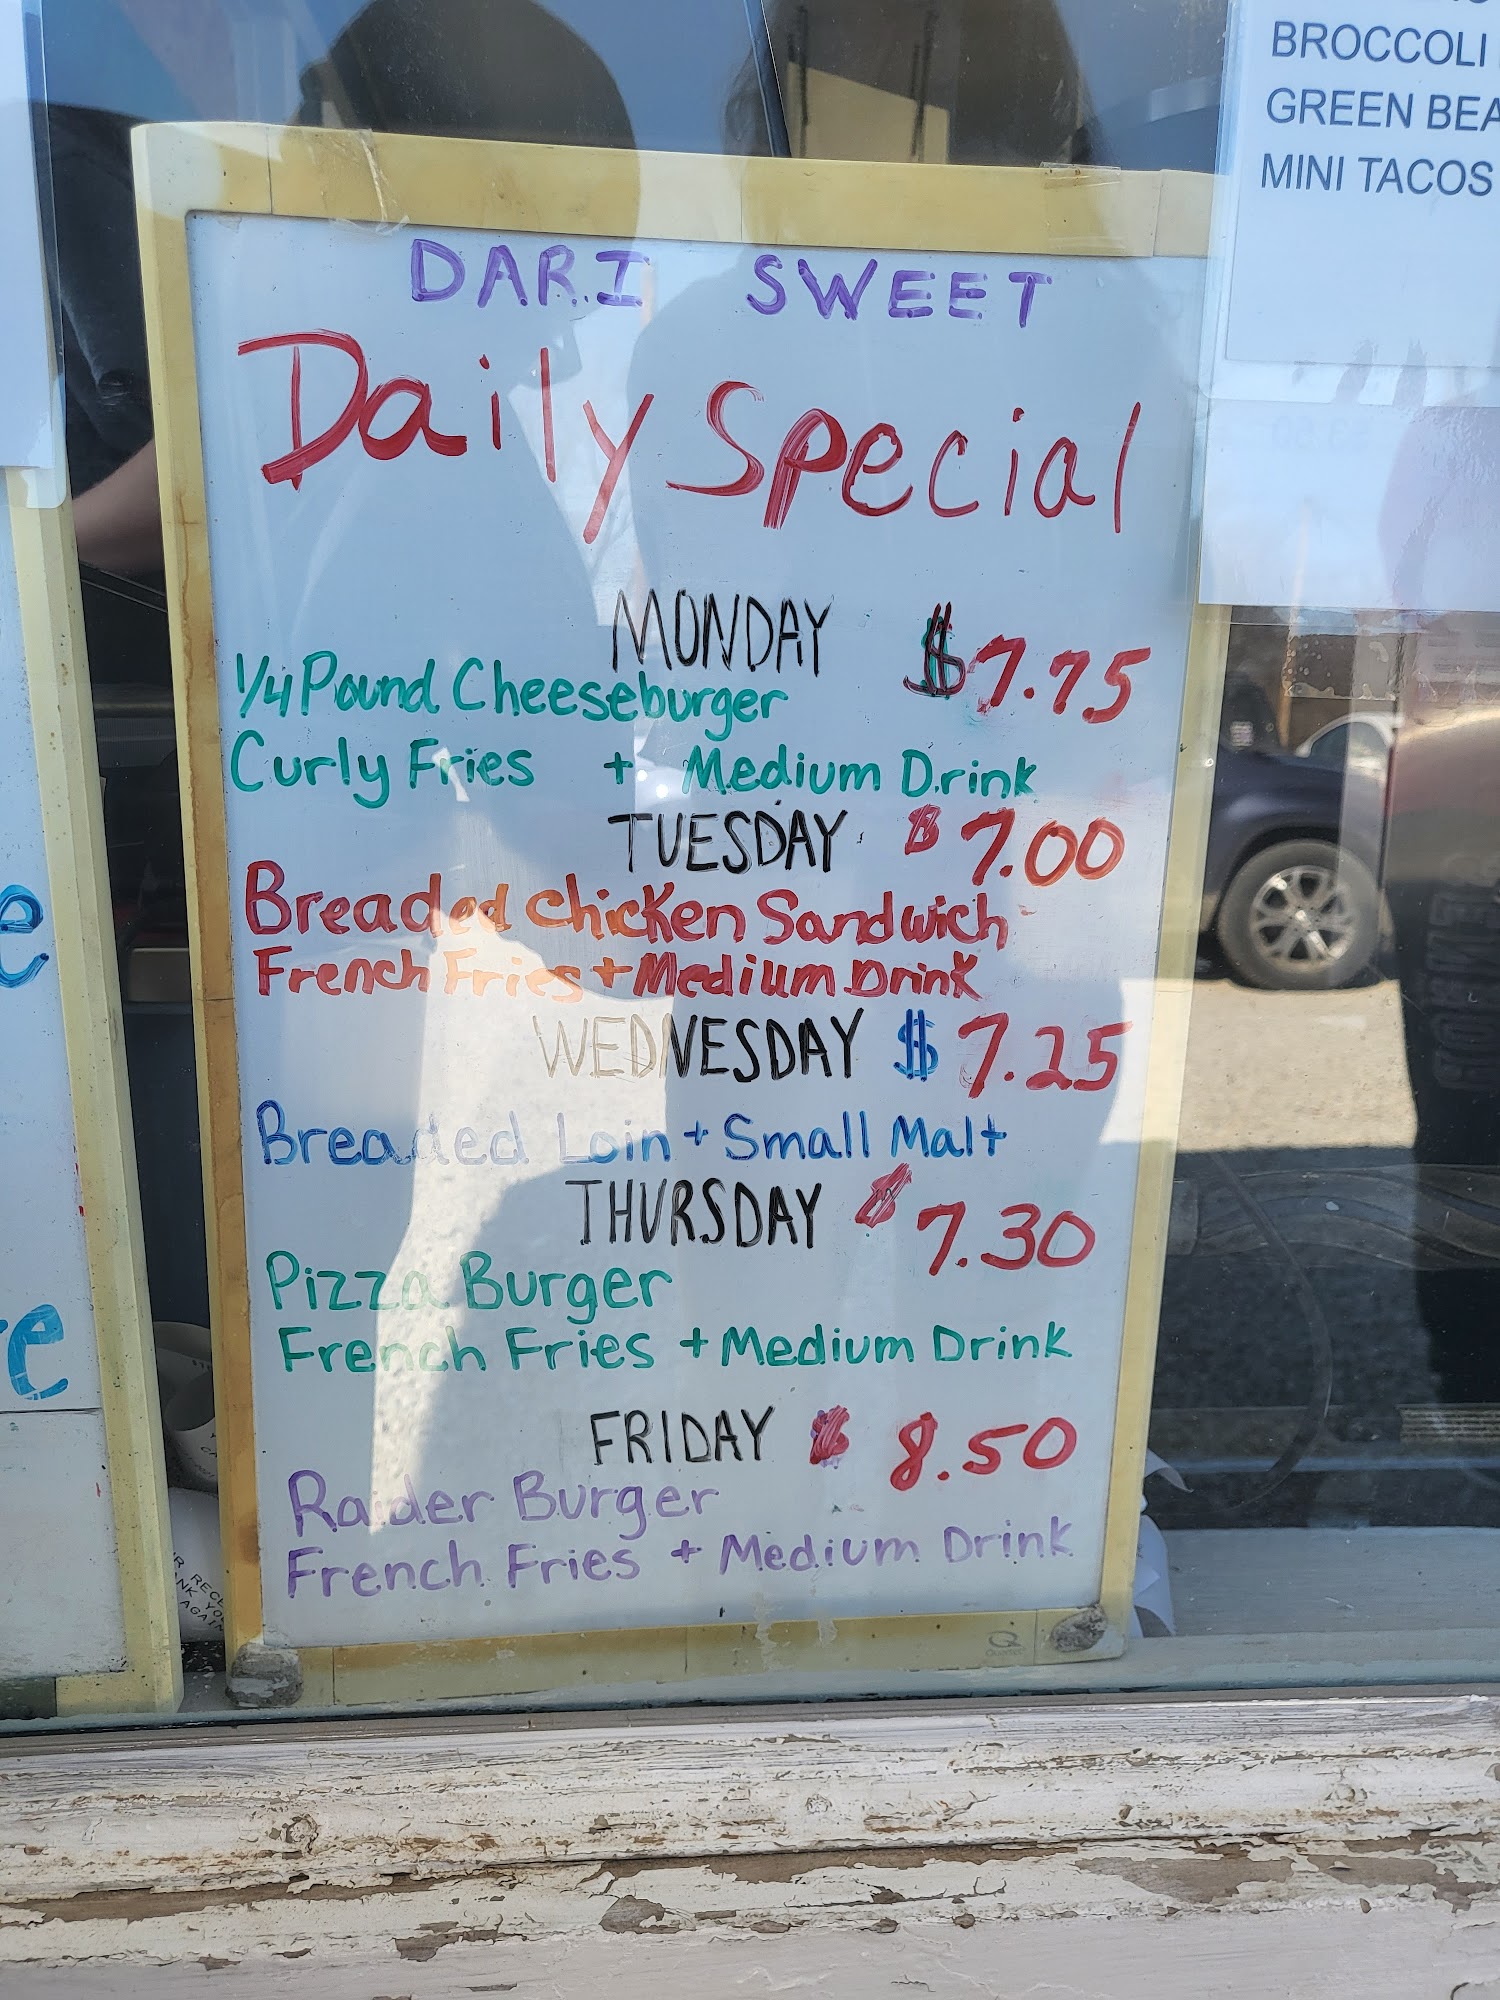 BROCCOLI
GREEN BEA
MINI TACOS
DARI SWEET
Daily Special
MONDAY $7.75
1/4 Pound Cheeseburger
Curly Fries + Medium Drink
TUESDAY $7.00
Breaded Chicken Sandwich
French Fries + Medium Drink
WEDNESDAY $7.25
Breaded Loin + Small Malt
THURSDAY $7.30
Pizza Burger
French Fries + Medium Drink
FRIDAY $8.50
Raider Burger
French Fries + Medium Drink
e
e